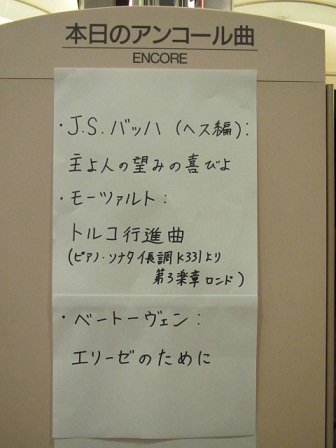 本日のアンコール曲
ENCORE
・J.S.バッハ(ヘス編):
主よ人の望みの喜びよ
・モーツァルト:
トルコ行進曲
(ピアノ・ソナタイ長調K331より
第3楽章 ロンド)
・ベートーヴェン:
エリーゼのために